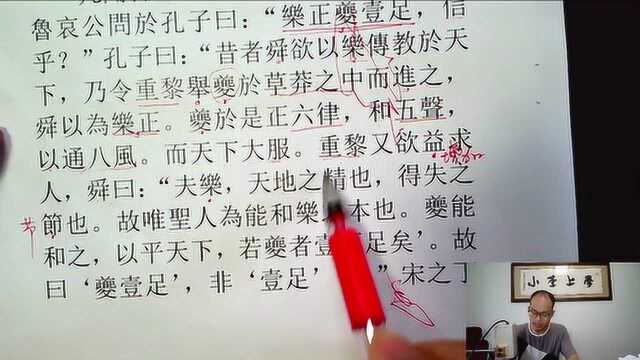 魯哀公問於孔子曰：“樂正夔壹足，信
乎？”孔子曰：“昔者舜欲以樂傳教於天
下，乃令重黎舉夔於草莽之中而進之，
舜以為樂正。夔於是正六律，和五聲，
以通八風。而天下大服。重黎又欲益求
人，舜曰：“夫樂，天地之精也，得失之
節也。故唯聖人為能和樂之本也。夔能
和之，以平天下，若夔者壹足矣’。故
曰‘夔壹足’，非‘壹足’”宋之丁
节
學上李小